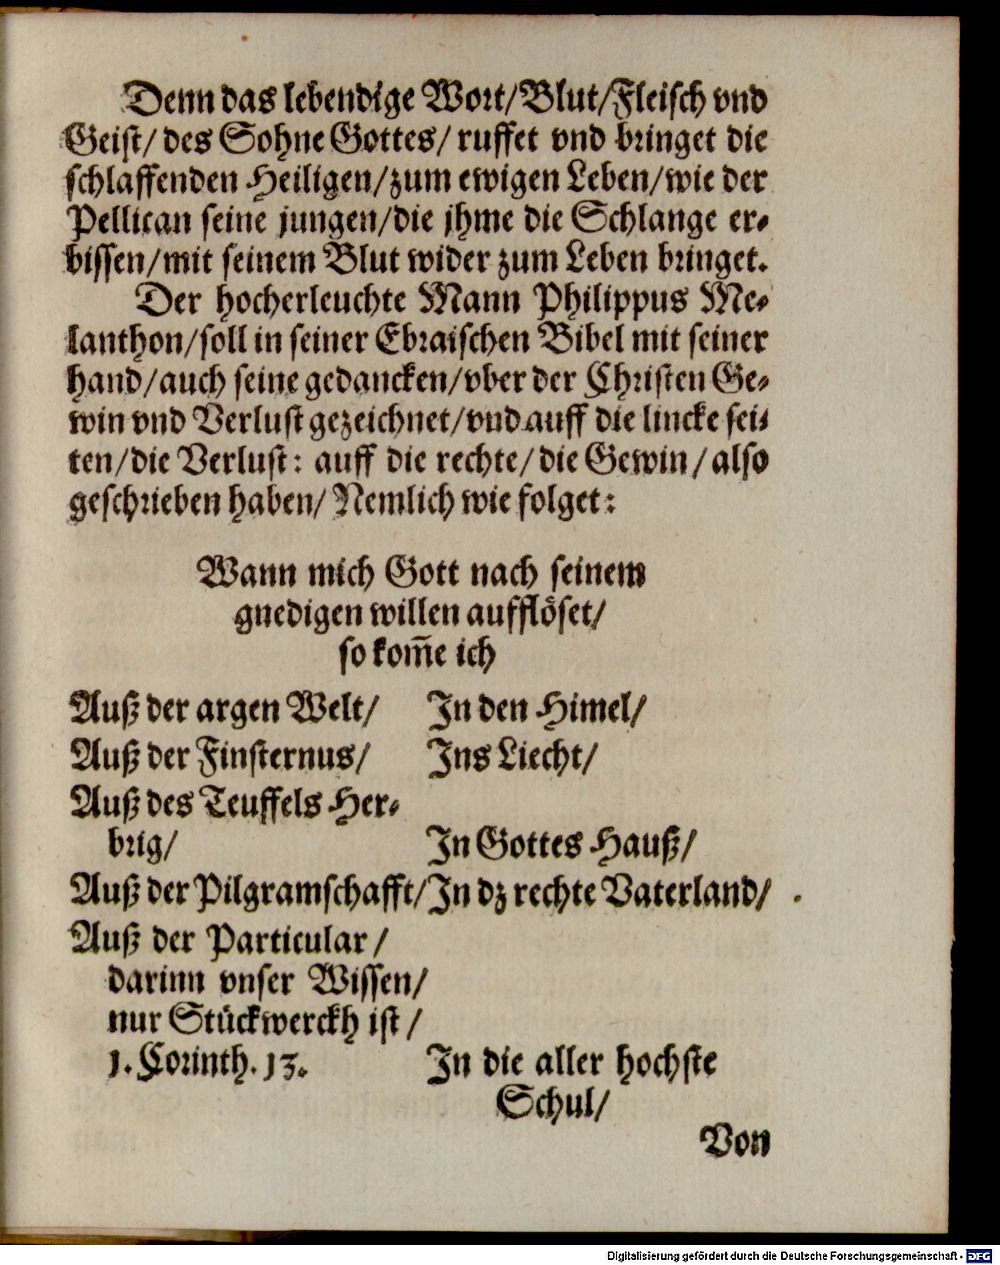 Denn das lebendige Wort/Blut/Fleisch vnd
Geist/ des Sohne Gottes/ ruffet vnd bringet die
schlaffenden Heiligen/zum ewigen Leben/wie der
Pellican seine jungen/die jhme die Schlange er-
bissen/mit seinem Blut wider zum Leben bringet.
Der hocherleuchte Mann Philippus Me-
lanthon/soll in seiner Ebraischen Bibel mit seiner
hand/auch seine gedancken/vber der Christen Ge-
win vnd Verlust gezeichnet/vnd auff die lincke sei-
ten/die Verlust: auff die rechte/die Gewin/also
geschrieben haben/ Nemlich wie folget:
Wann mich Gott nach seinem
gnedigen willen aufflöset/
so kom̃e ich
Auß der argen Welt/ In den Himel/
Auß der Finsternus/ Ins Liecht/
Auß des Teuffels Her-
brig/ In Gottes Hauß/
Auß der Pilgramschafft/In dz rechte Vaterland/
Auß der Particular/
darinn vnser Wissen/
nur Stückwerckh ist/
1. Corinth. 13. In die aller hochste
Schul/
Von
Digitalisierung gefördert durch die Deutsche Forschungsgemeinschaft - DFG